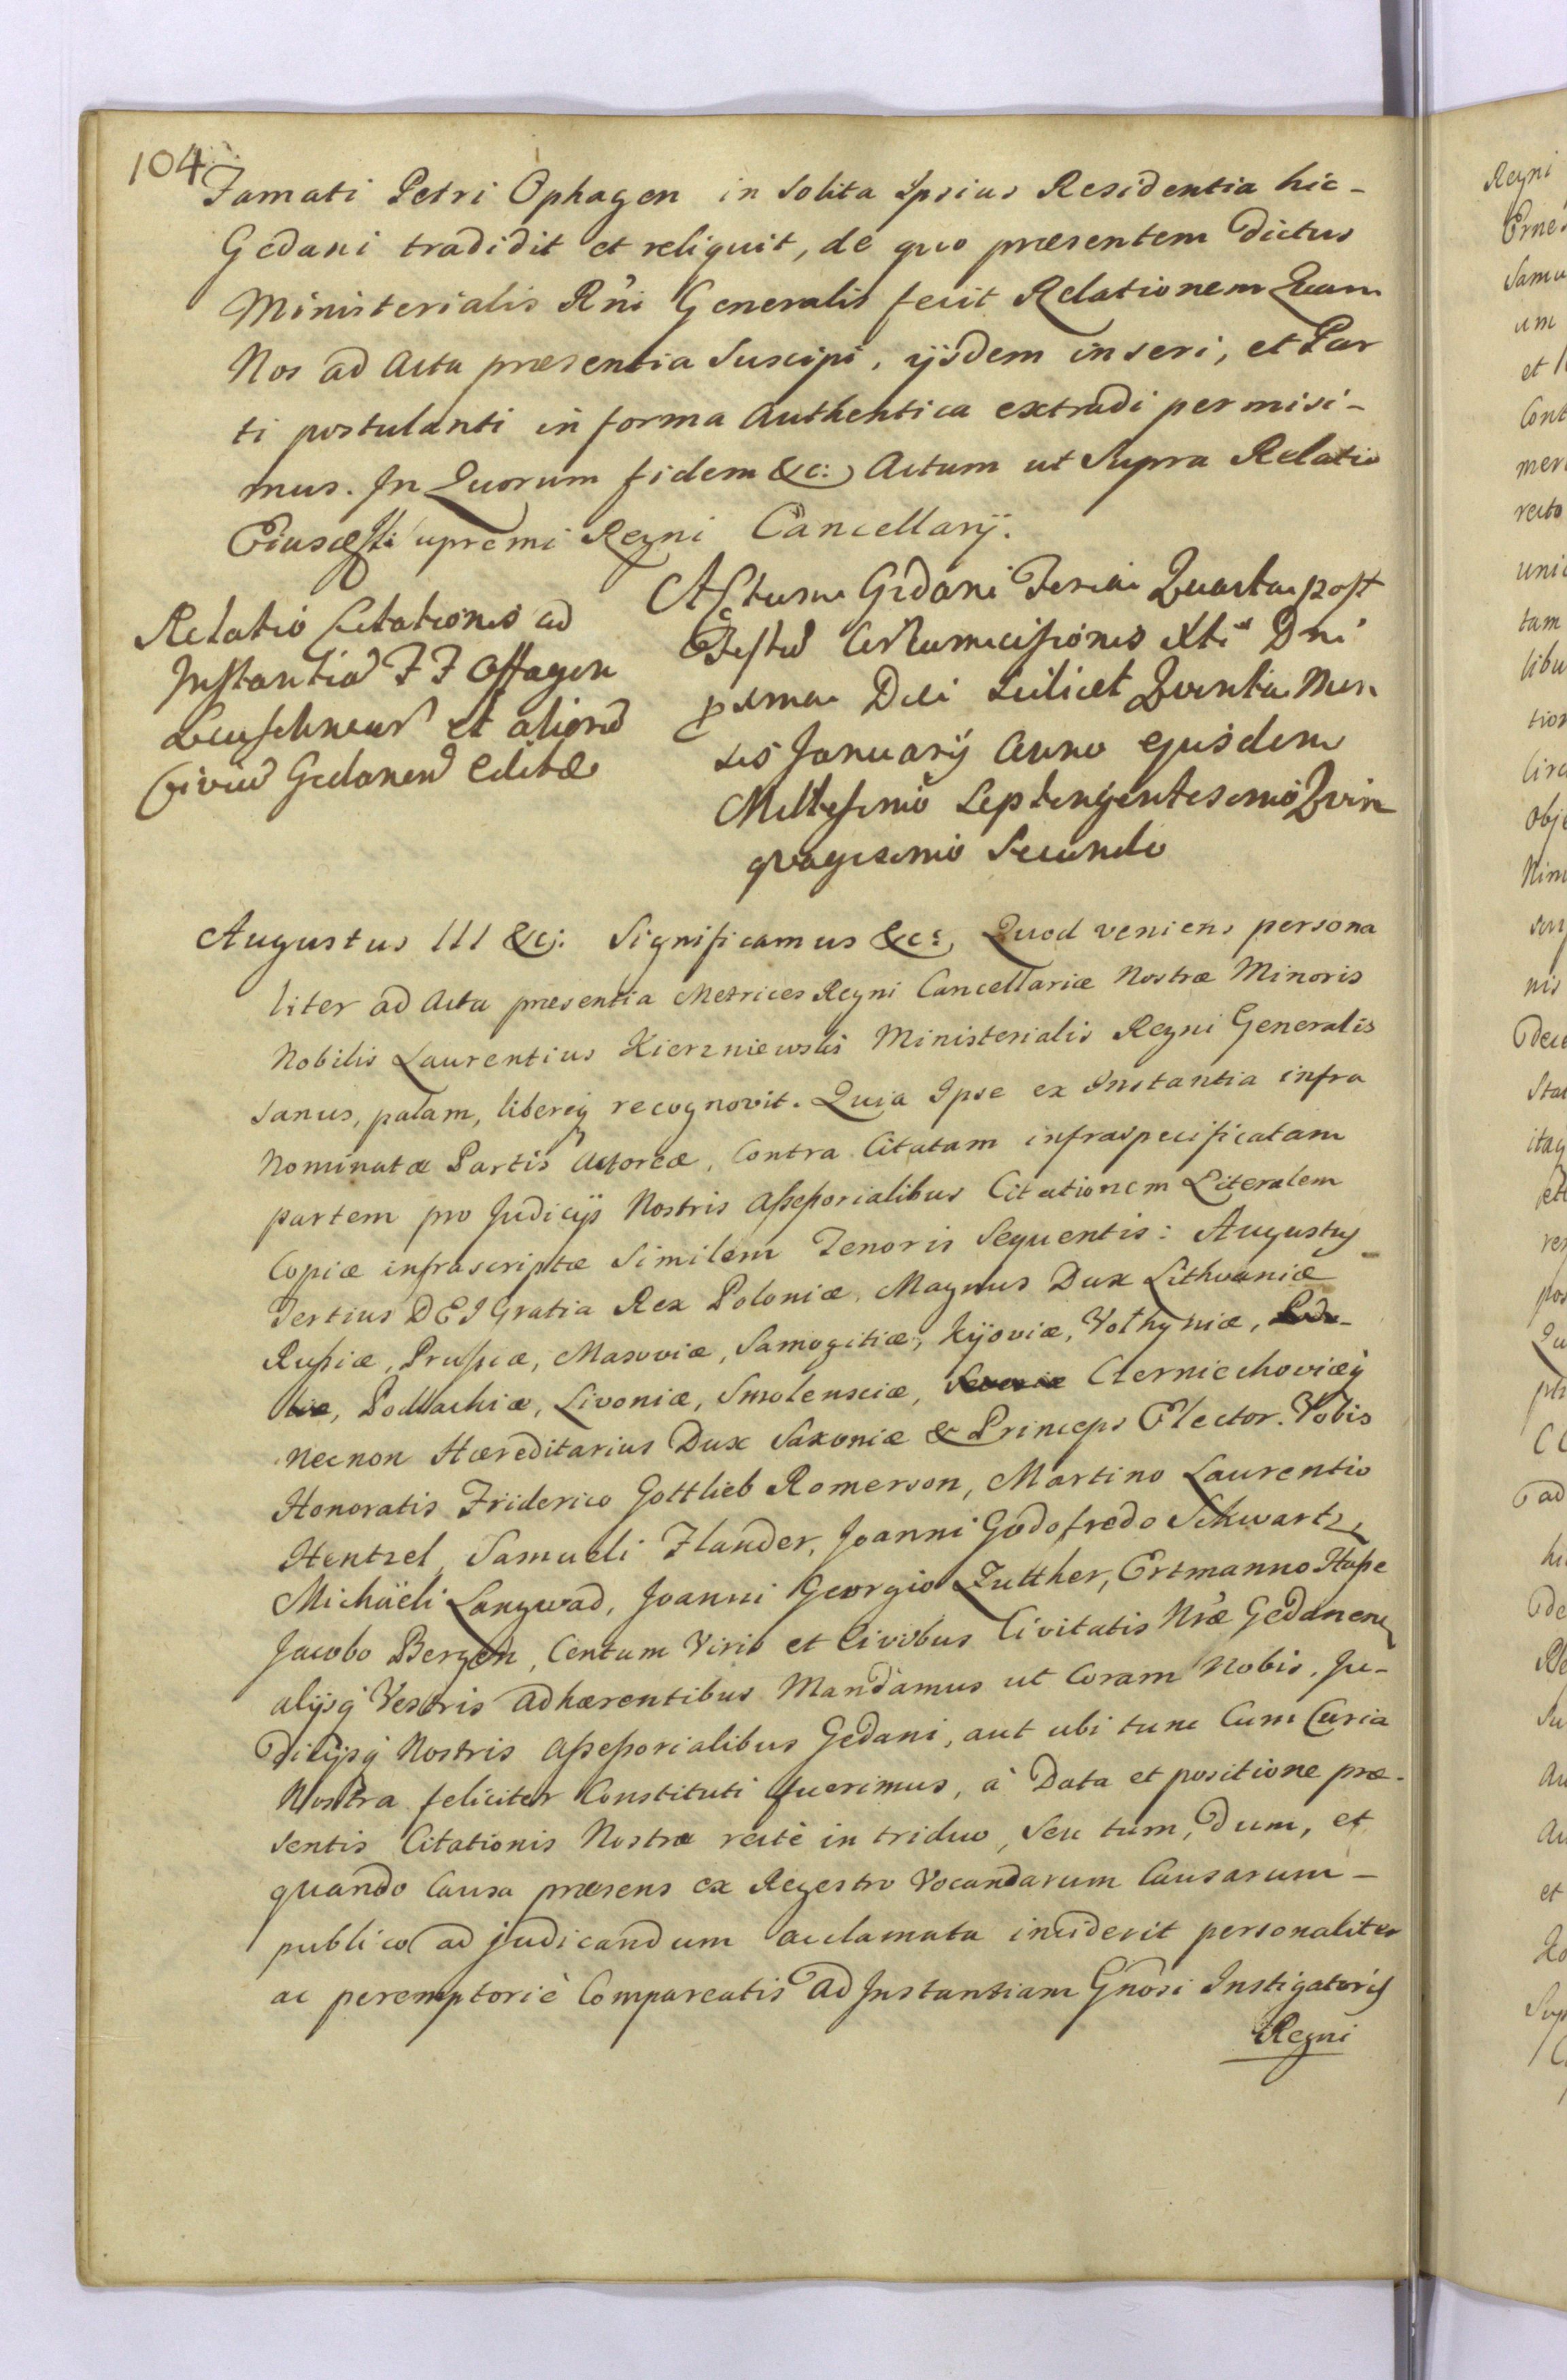 104
Famati Petri Ophagen in Solita Ipsius Residentia hic-
Gedani tradidit et reliquit, de quo præsentem dictus
Ministerialis R'ni Generalis fecit Relationem Quam
Nos ad Acta præsentia Suscipi, ijsdem inseri, et Par
ti postulanti in forma Authentica extradi permisi-
mus. In Quorum fidem &c: Actum ut Supra Relatio
upremi Regni Cancellarij.
Relatio Citationis ad
Instantia FF Offagen
et aliorũ
Civiũ Gedanen Editæ
Actum Gedani Feria Quarta post
Festũ Circumcisionis Xti Dni
pxima Die Scilicet Quinta Men
sis Januarij Anno ejusdem
Millesimo Septingentesimo Qvin
qvagesimo Secundo
Augustus III &c: Significamus &c: Quod veniens persona
liter ad Acta præsentia Metrices Regni Cancellariæ Nostræ Minoris
Nobilis Laurentius Kierzniewski Ministerialis Regni Generalis
Sanus, palam, libereq recognovit. Quia Ipse ex Instantia infra
Nominatæ Partis Actoreæ, Contra Citatam infraspecificatam
partem pro Judicijs Nostris Assessorialibus Citationem Literalem
Copiæ infrascriptæ Similem Tenoris Sequentis: Augustus
Tertius DEI Gratia Rex Poloniæ, Magnus Dux Lithvaniæ
Russiæ, Prussiæ, Masoviæ, Samogitiæ, Kijoviæ, Volhyniæ, Podo-
liæ, Podlachiæ, Livoniæ, Smolensciæ, Severiæ Czerniechoviæq
necnon Hæreditarius Dux Saxoniæ & Princeps Elector. Vobis
Honoratis Friderico Gottlieb Romerson, Martino Laurentio
Hentzel, Samueli Flander, Joanni Godofredo Schwartz,
Michaeli Langwad, Joanni Georgio Zutther, Ertmanno Hasse
Jacobo Bergen, Centum Viris et Civibus Civitatis Nræ Gedanen
alijsq Vestris adhærentibus Mandamus ut Coram Nobis, Ju-
dicijsq Nostris Assessorialibus Gedani, aut ubi tunc Cum Curia
Nostra feliciter Constituti fuerimus, à Data et positione præ-
sentis Citationis Nostræ rectè in triduo, Seu tum, dum, et
quando Causa præsens ex Regestro Vocandarum Causarum-
publico ad judicandum acclamata inciderit personaliter
ac peremptoriè Compareatis ad Instantiam Gnosi Instigatoris
Regni